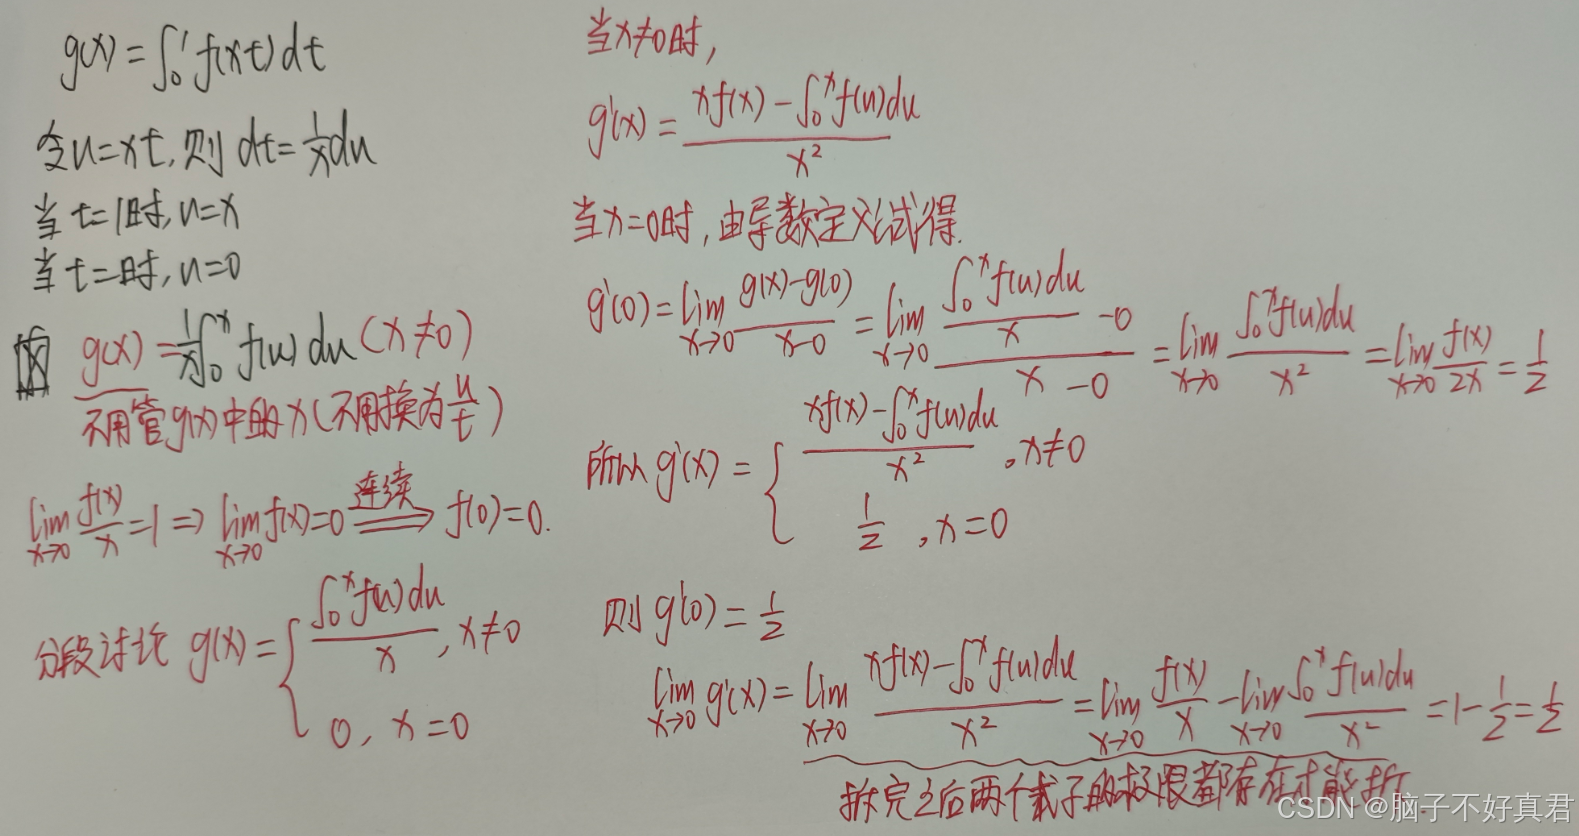 g(x)=∫₀¹f(xt)dt
令u=xt,则 dt=1/x du
当t=1时,u=x
当t=时,u=0
g(x)=1/x∫₀ˣf(u)du(x≠0)
不用管g(x)中的x(不用换为u/t)
lim x→0 f(x)/x=1⇒lim x→0 f(x)=0 连续⇒ f(0)=0.
分段讨论 g(x)={∫₀ˣf(u)du/x, x≠0
0, x=0
当x≠0时,
g'(x)=(xf(x)-∫₀ˣf(u)du)/x²
当x=0时,由导数定义试得.
g'(0)=lim x→0 (g(x)-g(0))/(x-0)=lim x→0 (∫₀ˣf(u)du/x-0)/(x-0)=lim x→0 ∫₀ˣf(u)du/x²=lim x→0 f(x)/2x=1/2
所以g'(x)={(xf(x)-∫₀ˣf(u)du)/x², x≠0
1/2, x=0
则g'(0)=1/2
lim x→0 g'(x)=lim x→0 (xf(x)-∫₀ˣf(u)du)/x²=lim x→0 f(x)/x-lim x→0 ∫₀ˣf(u)du/x²=1-1/2=1/2
拆完之后两个式子的极限都存在才能拆
CSDN @脑子不好真君